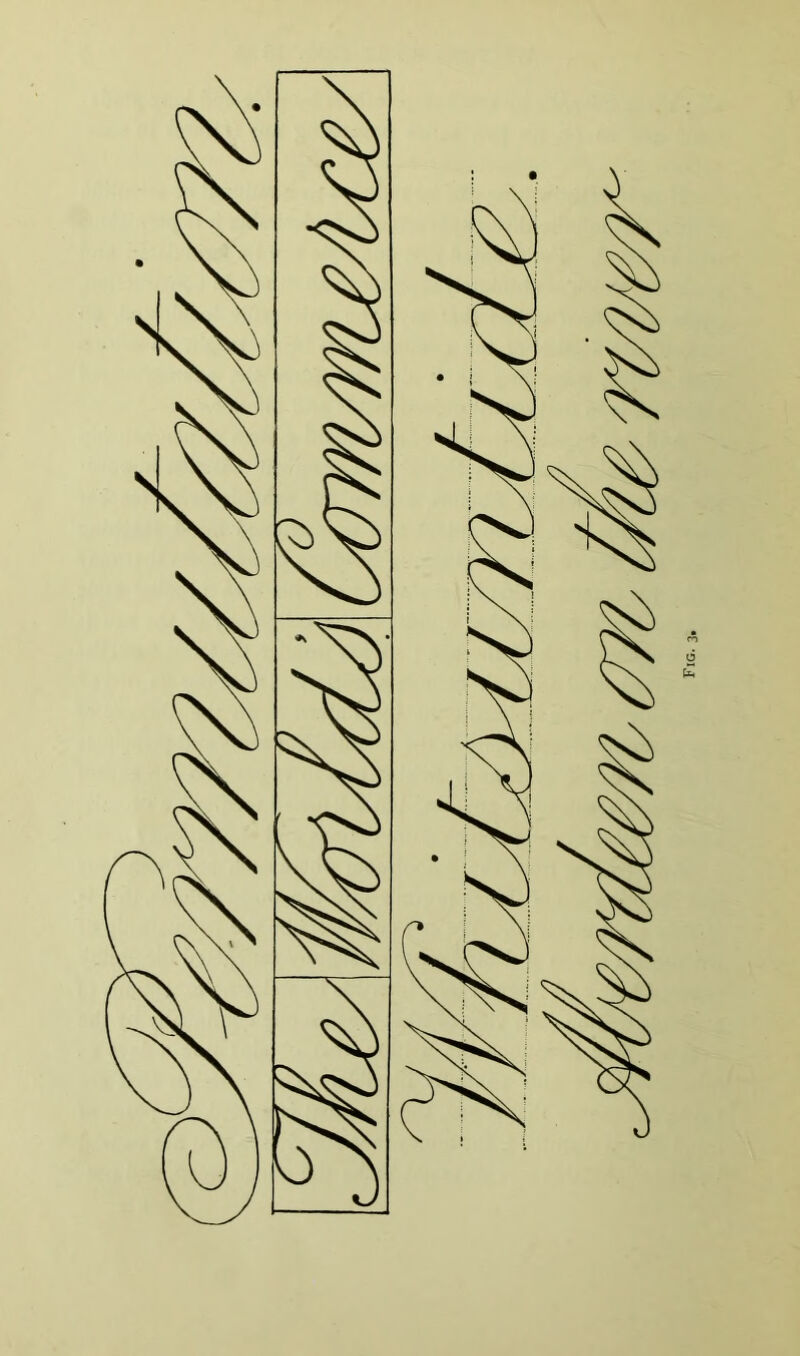 Permutation.
The World's Commerce
Whitsuntide.
Aberdeen on the river
FIG. 3.